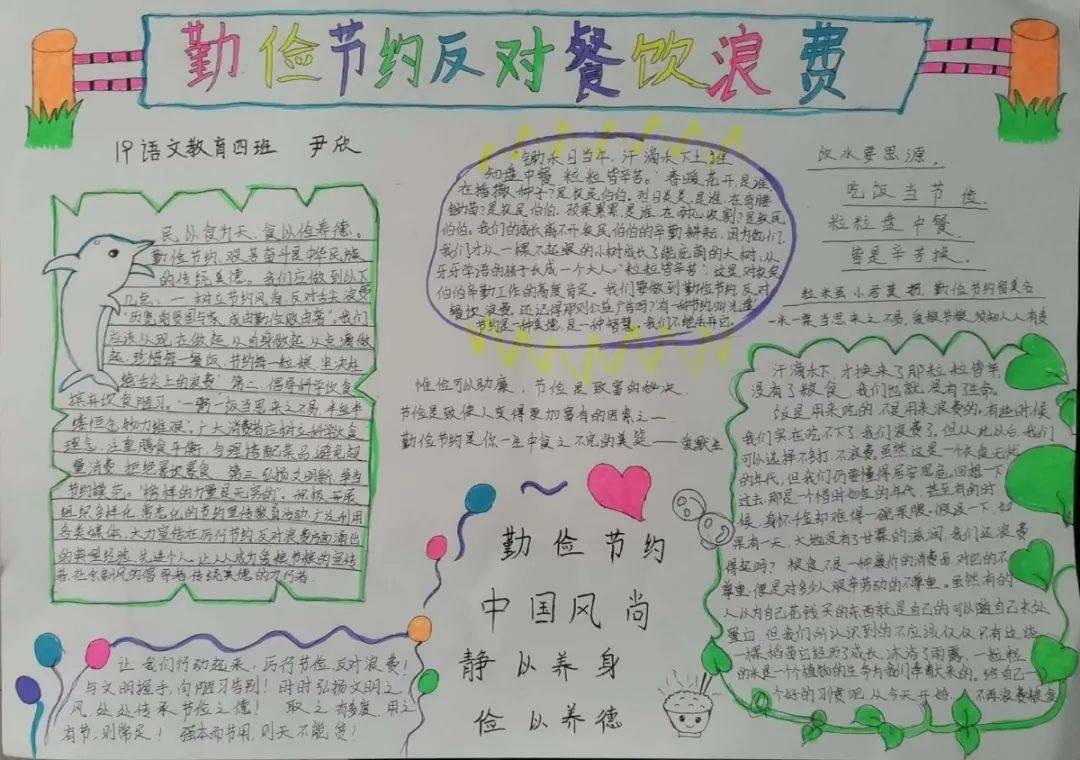 勤俭节约反对餐饮浪费
19语文教育四班 尹欣
民以食为天,食以俭养德。
勤俭节约,艰苦奋斗是中华民族
的传统美德。我们应做到以下
几点:一、树立节约风尚,反对舌尖浪费
"历览前贤国与家,成由勤俭败由奢"。我们
应该从现在做起,从自身做起,从点滴做
起,珍惜每一餐饭,节约每一粒粮,坚决杜
绝"舌尖上的浪费"。第二、倡导科学饮食
摈弃饮食陋习。"一粥一饭当思来之不易,半丝半
缕恒念物力维艰"。广大消费者应树立科学饮食
理念,注重膳食平衡,合理搭配菜品,避免超
量消费,拒绝暴饮暴食。第三、弘扬文明新,争当
节约模范。"榜样的力量是无穷的"。积极开展
组织多样化,常态化的节约宣传教育活动,广泛利用
各类媒体,大力宣传在厉行节约反对浪费方面涌出
的典型经验,先进个人。让人人成为爱粮节粮的宣传
者,社会新风的倡导者,传统美德的力行者。
锄禾日当午,汗滴禾下土,谁
知盘中餐,粒粒皆辛苦。"春暖花开,是谁
在播撒种子?是农民伯伯。烈日炎炎,是谁在弯腰
锄苗?是农民伯伯。硕果累累,是谁在树边收割?是农民
伯伯。我们的成长离不开农民伯伯的辛勤耕耘。因为他们,
我们才从一棵不起眼的小树成长了能庇荫的大树,从
牙牙学语的孩子长成一个大人。"粒粒皆辛苦"这是对农民
伯伯辛勤工作的高度肯定。我们要做到勤俭节约,反对
餐饮浪费。还记得那则公益广告吗?有一种节约叫光盘
节约是一种美德,是一种智慧。我们不能丢弃它。
饮水要思源,
吃饭当节俭。
粒粒盘中餐,
皆是辛苦换。
粒米虽小君莫扔,勤俭节约留美名
一米一粟当思来之不易,爱粮节粮须知人人有责
惟俭可以助廉,节俭是致富的秘诀
节俭是致使人变得更加富有的因素之一
勤俭节约是你一生中食之不完的美筵——爱默生
勤俭节约
中国风尚
静以养身
俭以养德
汗滴禾下,才换来了那粒粒皆辛,
没有了粮食,我们也就没有了生命。
饭是用来吃的,不是用来浪费的,有些时候
我们实在吃不下了,我们浪费了。但从此以后,我们
可以选择不多打,不浪费。虽然这是一个衣食无忧
的年代,但我们仍要懂得居安思危,回想一下
过去,那是个惜时如金的年代,甚至有的时
候,身怀千金却难得一碗果腹。假设一下,如
果有一天,大地没有了甘霖的滋润,我们还浪费
得起吗? 粮食不是一种廉价的消费品,对它的不
尊重,便是对多少人艰辛劳动的不尊重。虽然有的
人认为自己花钱买的东西就是自己的可以随自己来处
置它,但我们所认识到的不应该仅仅只有这些
一棵稻苗它经历了成长,沐浴了雨露,一粒粒
的米是一个植物的生命为我们奉献来的。给自己一
个好的习惯吧,从今天开始,不再浪费粮食
让我们行动起来,厉行节俭,反对浪费!
与文明握手,向陋习告别!时时弘扬文明之
风,处处传承节俭之德! 取之有度,用之
有节,则常足! 强本而节用,则天不能贫!